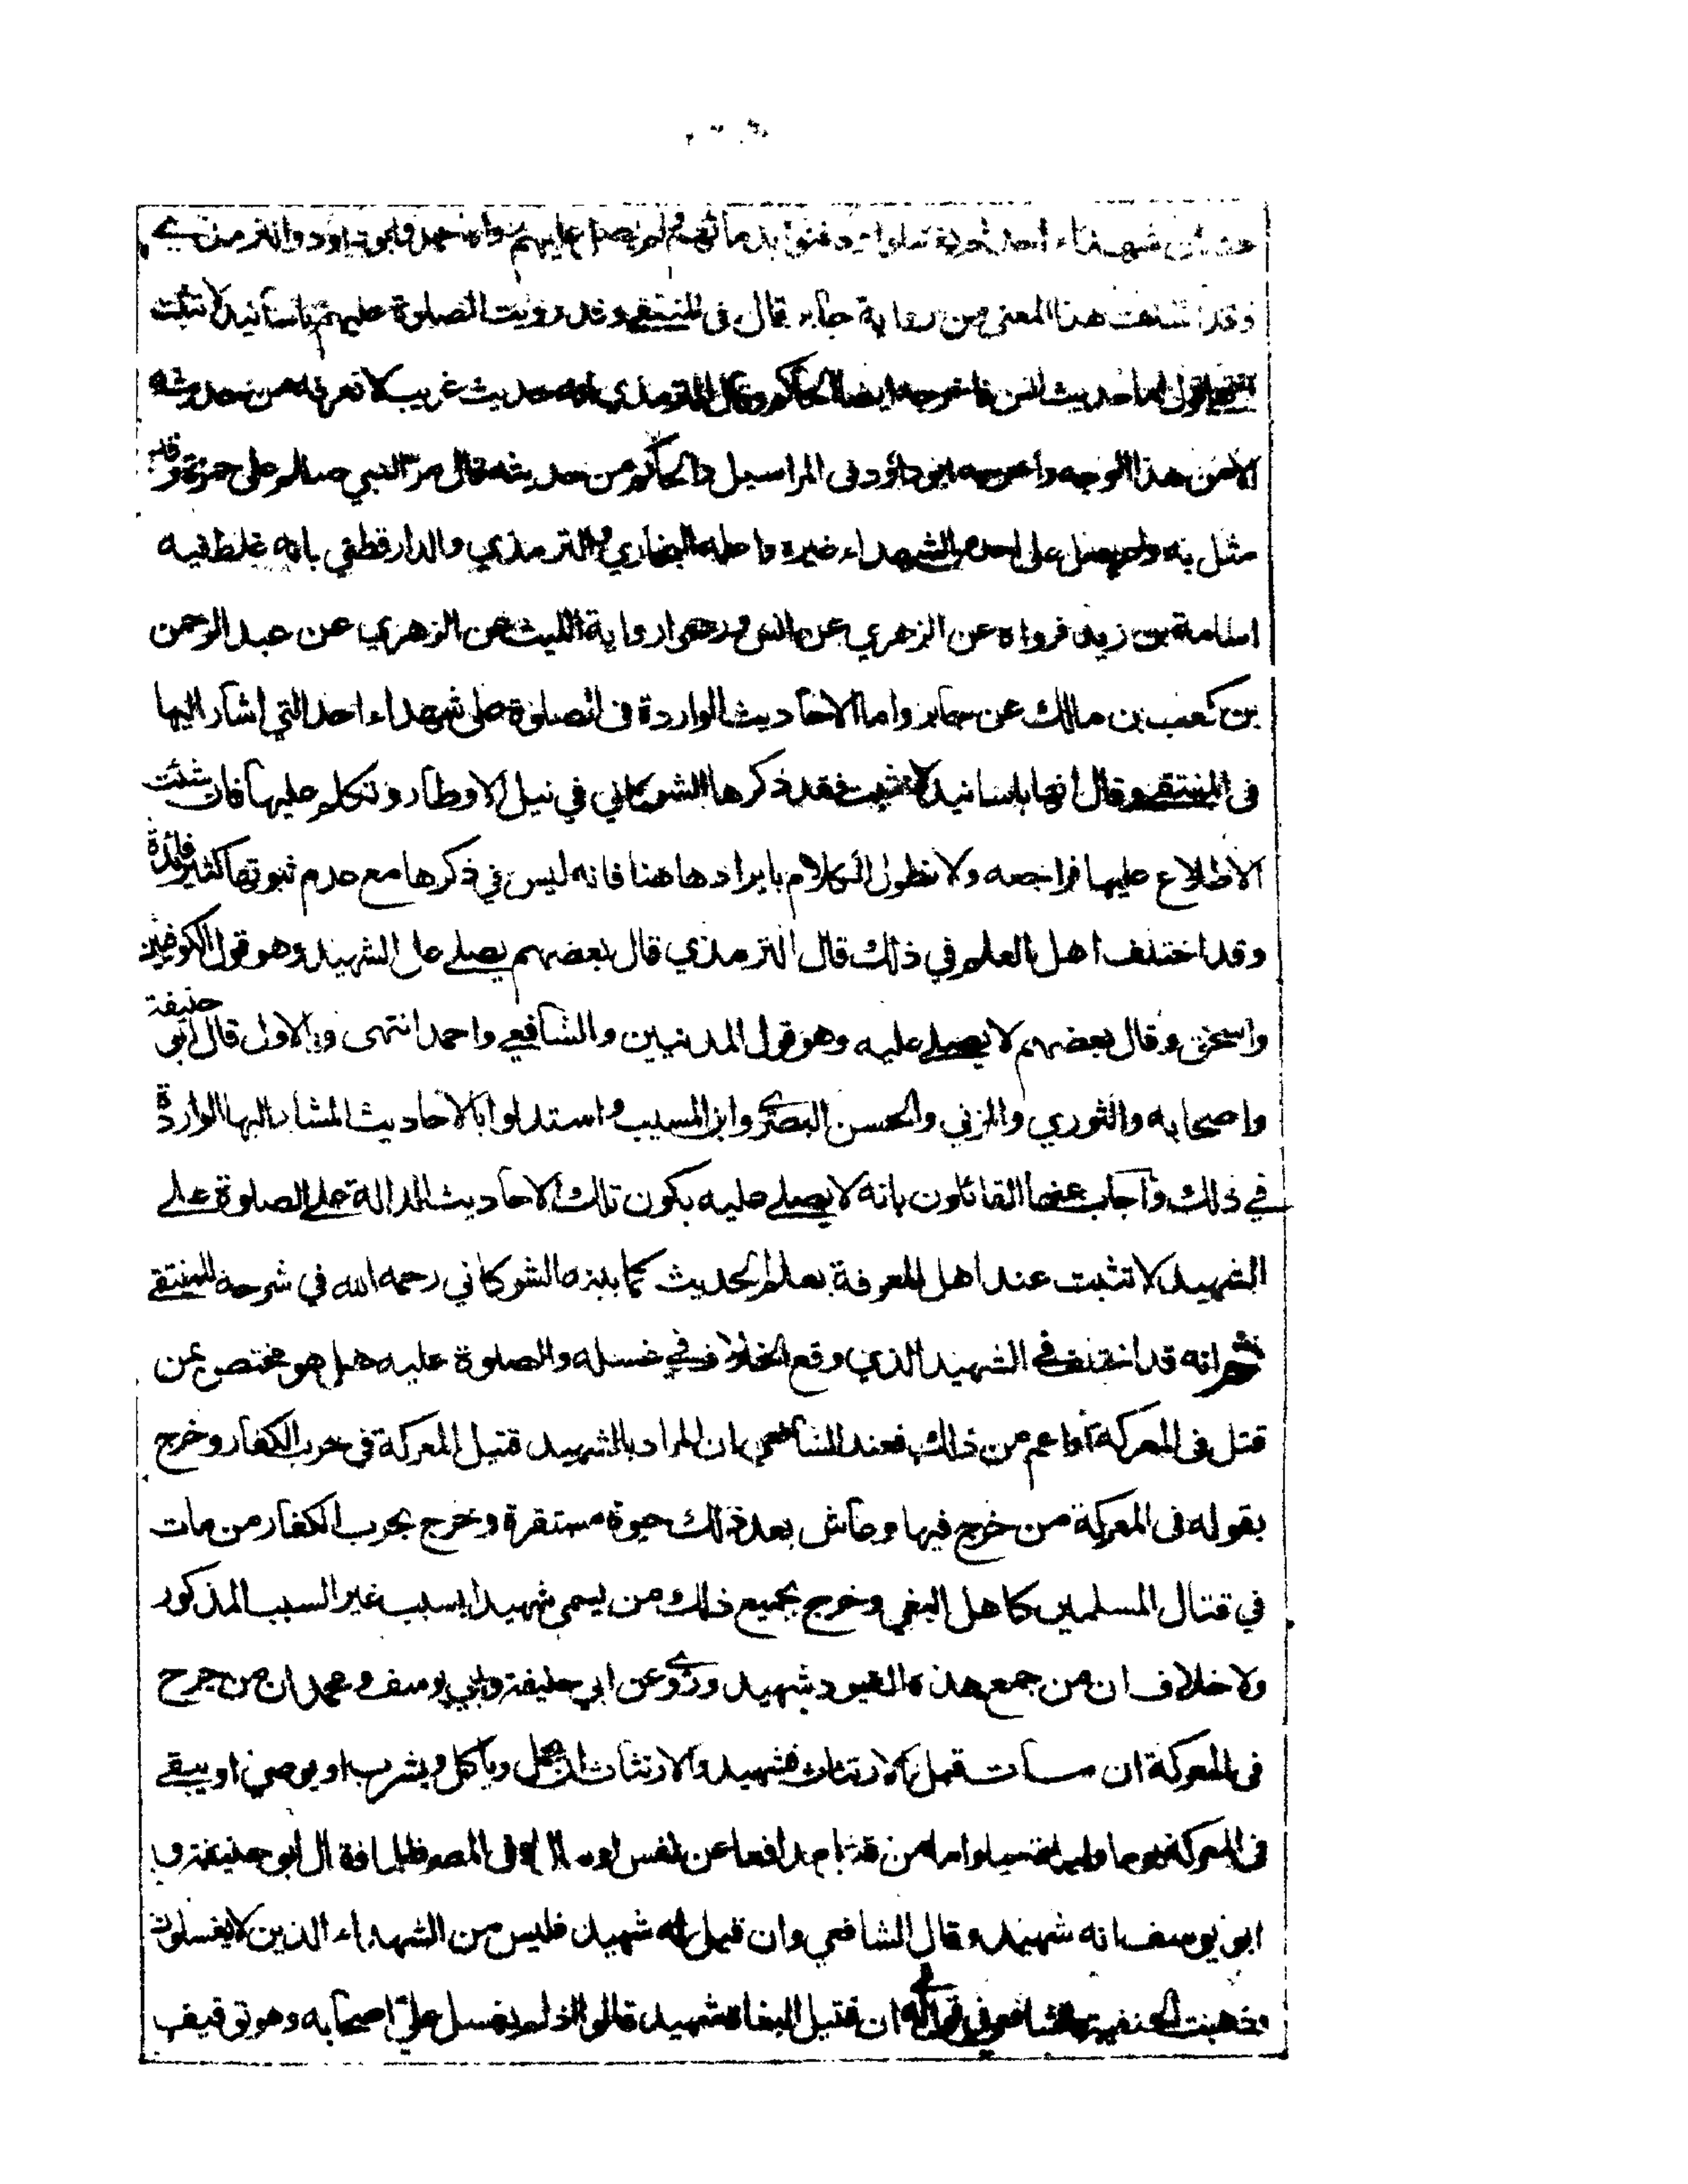 شهداء احد لم يغسلوا ودفنوا بدمائهم ولم يصل عليهم رواه احمد وابوداود والترمذي
وقد هذا المعنى من رواية جابر قال في المنتقى وقد رويت الصلوة عليهم باسانيد لا تثبت
اما حديث انس فاخرجه ايضا الحاكم وقال الترمذي انه حديث غريب لا نعرفه من حديثه
الا من هذا الوجه واخرجه ابو داؤد في المراسيل والحاكم من حديثه قال مر النبي صللم على حمزة وقد
مثل به ولم يصل على احد من الشهداء غيره واعله البخاري والترمذي والدارقطني بانه غلط فيه
اسامة بن زيد فرواه عن الزهري عن انس ورجحوا رواية الليث عن الزهري عن عبد الرحمن
بن كعب بن مالك عن جابر واما الاحاديث الواردة في الصلوة على شهداء احد التي اشار اليها
في المنتقى وقال انها باسانيد لا تثبت فقد ذكرها الشوكاني في نيل الاوطار وتكلم عليها فان شئت
الاطلاع عليها فراجعه ولا نطول الكلام بايرادها هنا فانه ليس في ذكرها مع عدم ثبوتها كثير فائدة
وقد اختلف اهل العلم في ذلك قال الترمذي قال بعضهم يصلى على الشهيد وهو قول الكوفيين
واسحق وقال بعضهم لا يصلى عليه وهو قول المدنيين والشافعي واحمد انتهى وبالاول قال ابي حنيفة
واصحابه والثوري والمزني والحسن البصري وابن المسيب واستدلوا بالاحاديث المشار اليها الواردة
في ذلك واجاب عنها القائلون بانه لا يصلى عليه بكون تلك الاحاديث الدالة على الصلوة على
الشهيد لا تثبت عند اهل المعرفة بعلم الحديث كما بينه الشوكاني رحمه الله في شرحه للمنتقى
ثم انه قد اختلف في الشهيد الذي وقع الخلاف في غسله والصلوة عليه هل هو مختص بمن
قتل في المعركة او اعم من ذلك فعند الشافعي ان المراد بالشهيد قتيل المعركة في حرب الكفار وخرج
بقوله في المعركة من خرج فيها وعاش بعد ذلك حيوة مستقرة وخرج بحرب الكفار من مات
في قتال المسلمين كاهل البغي وخرج بجميع ذلك من يسمى شهيدا بسبب غير السبب المذكور
ولا خلاف ان من جمع هذه القيود شهيد وروي عن ابي حنيفة وابي يوسف ومحمد ان من جرح
في المعركة ان مات قبل الارتثاث فشهيد والارتثاث ان يحمل وياكل ويشرب او يوصي او يبقى
في المعركة يوما من قتل مدافعا عن نفس او مال او في المصر ظلما قال ابو حنيفة و
ابو يوسف انه شهيد وقال الشافعي وان قيل له شهيد فليس من الشهداء الذين لا يغسلون
وذهبت الحنفية والشافعي في قول له ان قتيل البغاة شهيد قالوا اذ لم يغسل علي اصحابه وهو توقيف